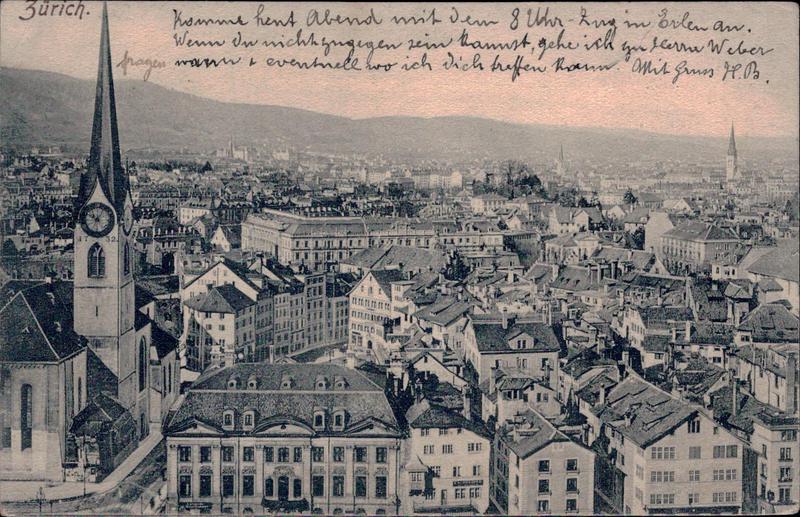 Zürich.
Komme heut Abend mit dem 8 Uhr-Zug in Erlen an.
Wenn du nicht zugegen sein kannst, gehe ich zu Herrn Weber
fragen
wann & eventuell wo ich dich treffen kann. Mit Gruss H.B.